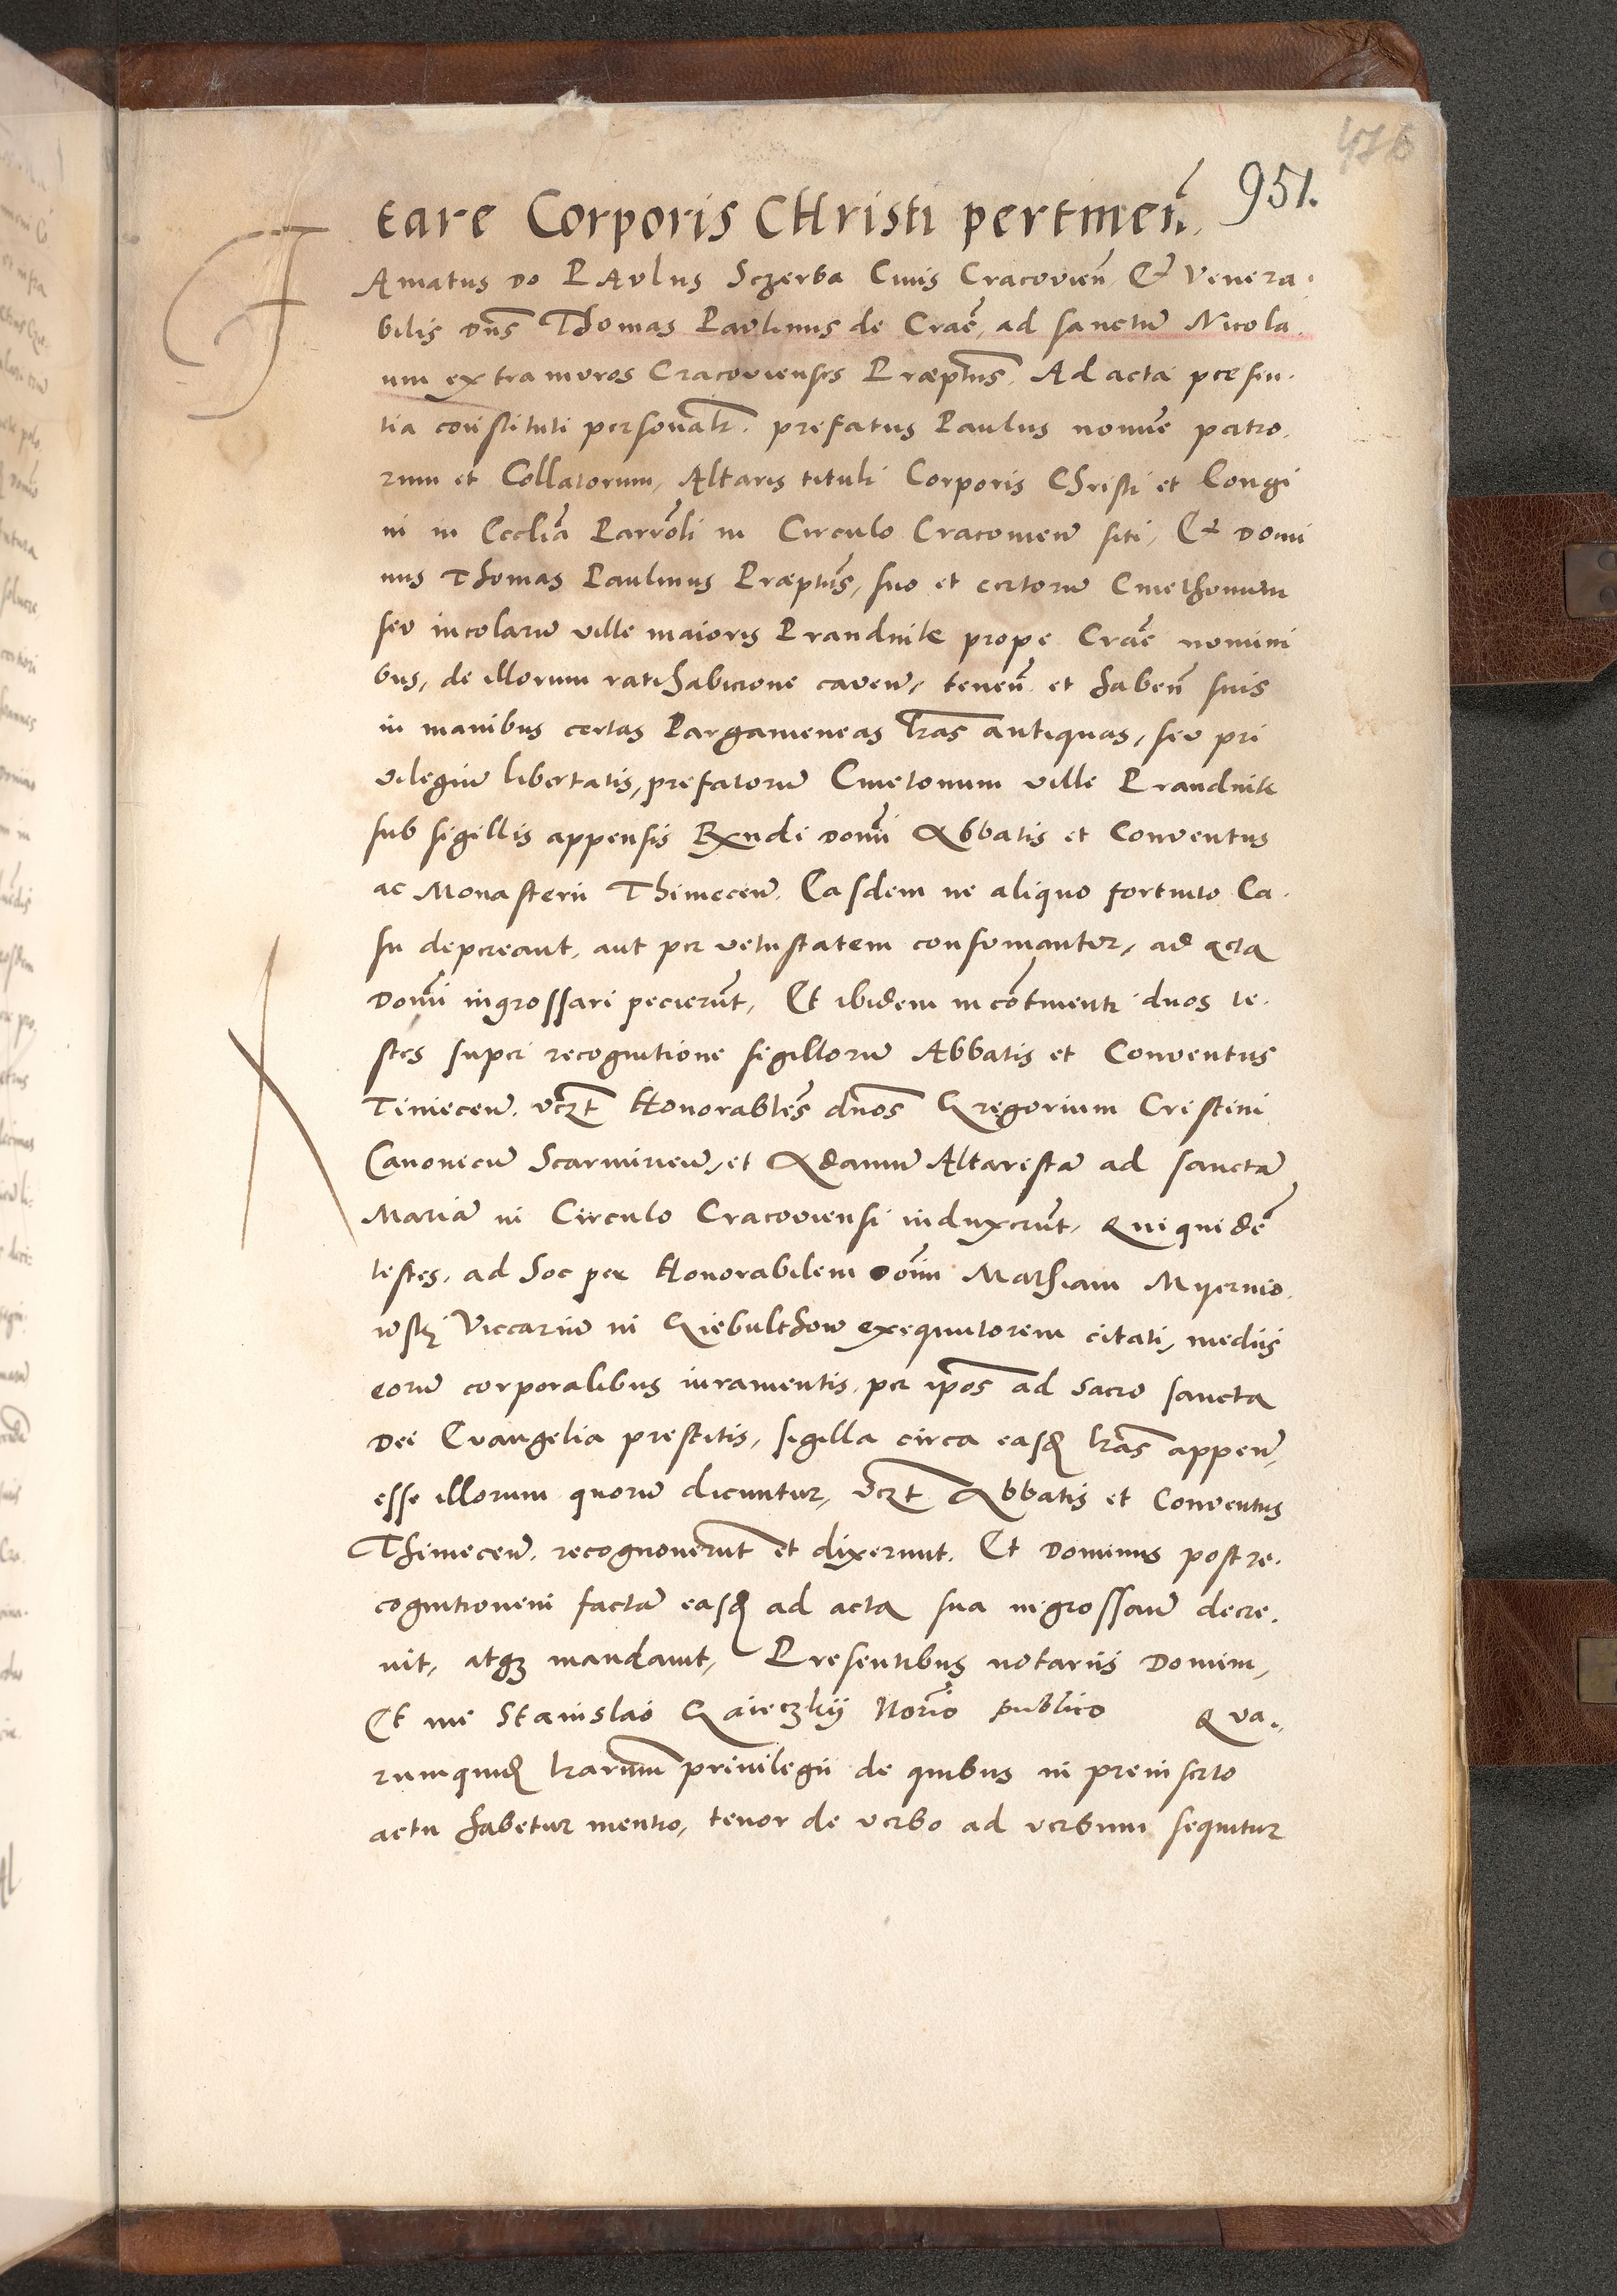 476
951.
tare Corporis CHristi pertineñ.
FAmatus do PAulus Sczerba Civis Cracovieñ Et Venera.
bilis dns Thomas Paulinus de Crac̃, ad sanctũ Nicola.
um extra muros Cracovienses Præptus. Ad acta presen.
tia constituti personalr. prefatus Paulus nomĩe patro.
rum et Collatorum, Altaris tituli Corporis Christi et Longi
ni in Ecclia Parroli in Circulo Cracovieñ siti, Et Domi
nus Thomas Paulinus Præptus, suo et certorũ Cmethonum
seu incolarũ ville maioris Prandnik prope Crac̃ nomini
bus, de illorum ratihabicione caveñ, teneñ et habeñ suis
in manibus certas Pargameneas lras antiquas, seu pri
vilegiũ libertatis, prefatorũ Cmetonum ville Prandnik
sub sigillis appensis Rxndi domi Abbatis et Conventus
ac Monasterii Thineceñ. Easdem ne aliquo fortuito Ca.
su depereant, aut per vetustatem consumantur, ad acta
Domi ingrossari pecierũt, Et ibidem in cõtinenti duos te.
stes super recognitione sigillorũ Abbatis et Conventus
Tinieceñ. vczt Honorables dnos Gregorium Cristini
Canonicũ Scarmirieñ, et Adamũ Altaristã ad sanctã
Mariã in Circulo Cracoviensi induxerũt, Qui quidẽ
testes, ad hoc per Honorabilem Dom̃ Mathiam Myernio.
wski Viccariũ in Giebulthow exequutorem citati, mediis
eorũ corporalibus iuramentis per ipos ad sacro sancta
Dei Evangelia prestitis, sigilla circa easd lras appeñ,
esse illorum quorũ dicuntur, vczt Abbatis et Conventus
Thineceñ. recognoverũt et dixerunt. Et Dominus post re.
cognitionem factã easd ad acta sua ingrossari decre.
vit, atq mandavit, Presentibus notariis Domini,
Et me Stanislao Gaieczkij Norio publico Qua.,
rumquid lrarum privilegii de quibus in preinserto
actu habetur mentio, tenor de verbo ad verbum sequitur